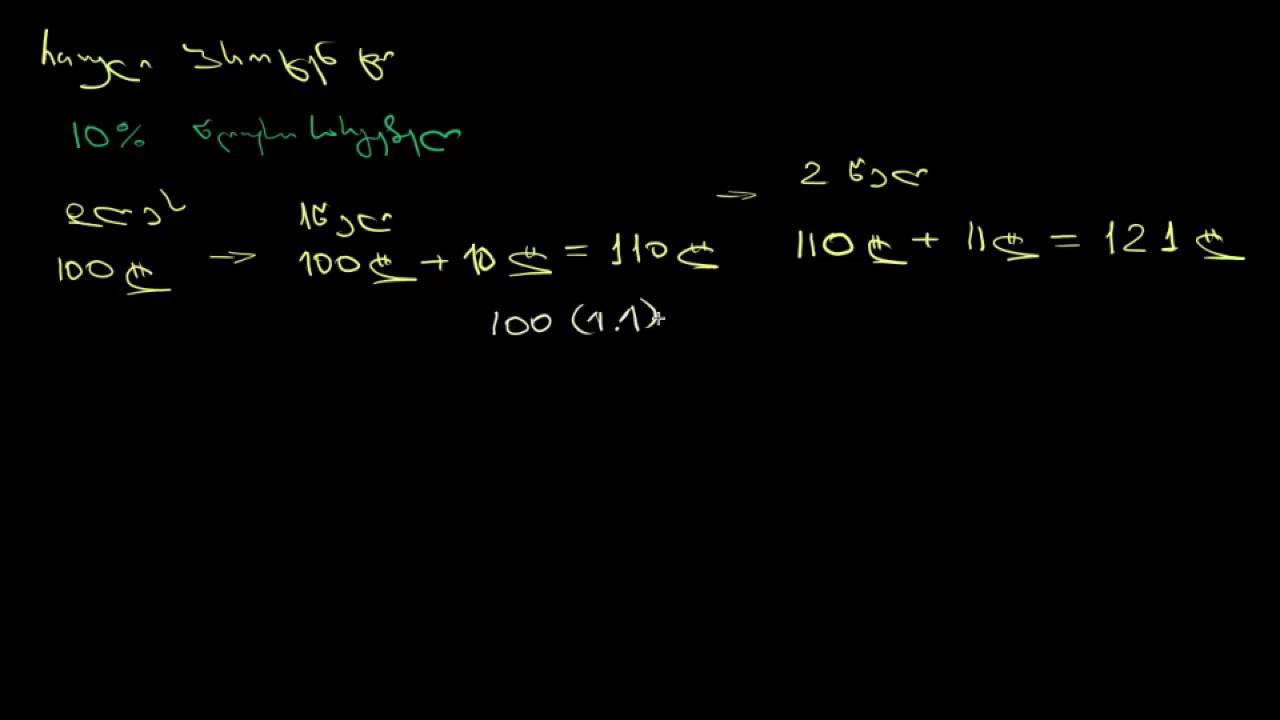 10% წლიური სარგებელი
დღეს
100₾ → 1 წელი
100₾ + 10₾ = 110₾
→ 2 წელი
110₾ + 11₾ = 121₾
100 (1.1)